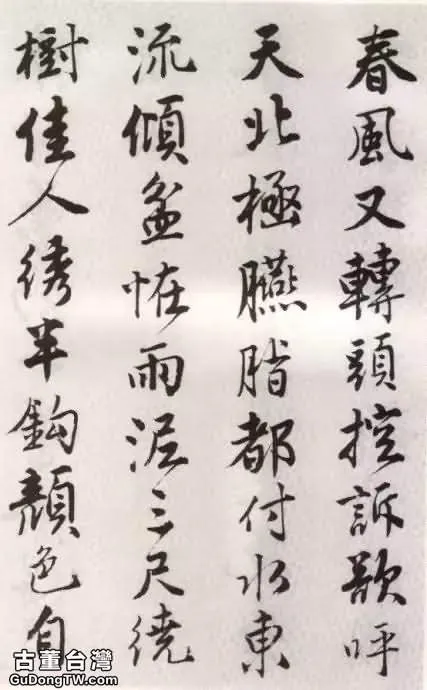 春風又轉頭控訴欲呼
天北極臙脂都付水東
流傾盆恠雨泥三尺繞
樹佳人綉半鈎顔色自
古董台灣
GuDongTW.com